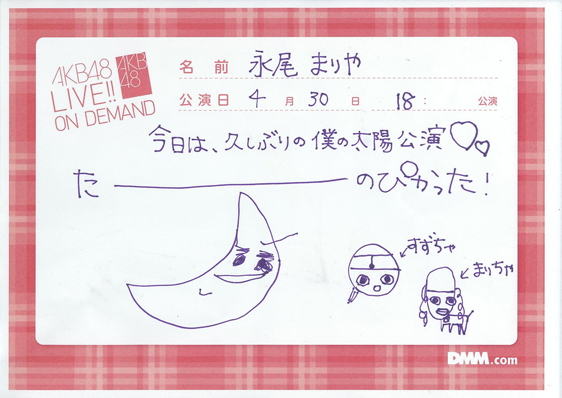 AKB48
LIVE!!
ON DEMAND
AKB
48
名前 永尾まりや
公演日 4月30日 18: 公演
今日は、久しぶりの僕の太陽公演♡♡
た―――のぴかった!
すずちゃ
まりちゃ
DMM.com